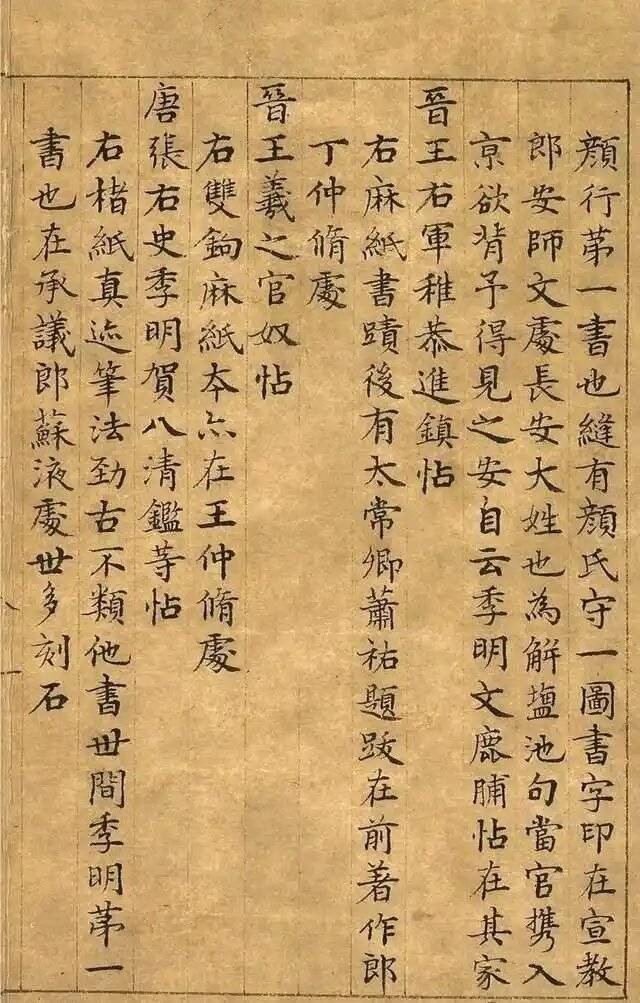 顔行苐一書也縫有顔氏守一圖書字印在宣教
郎安師文處長安大姓也為解塩池句當官携入
京欲背予得見之安自云季明文鹿脯帖在其家
晉王右軍稚恭進鎮帖
右麻紙書蹟後有太常卿蕭祐題跋在前著作郎
丁仲脩處
晉王羲之官奴帖
右雙鉤麻紙本亦在王仲脩處
唐張右史季明賀八清鑑等帖
右楮紙真迹筆法勁古不類他書世間季明苐一
書也在承議郎蘇液處世多刻石